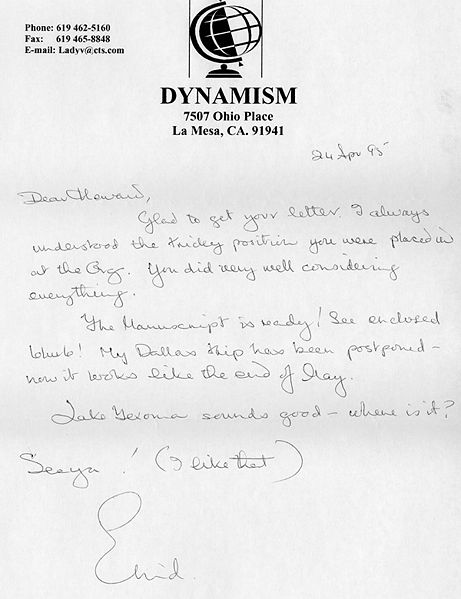 Phone: 619 462-5160
Fax: 619 465-8848
E-mail: Ladyv@cts.com
DYNAMISM
7507 Ohio Place
La Mesa, CA. 91941
24 Apr 95
Dear Howard,
Glad to get your letter. I always
understood the tricky position you were placed in
at the Org. You did very well considering
everything.
The Manuscript is ready! See enclosed
blurb! My Dallas trip has been postponed -
now it looks like the end of May.
Lake Texoma sounds good - where is it?
Seeya! (I like that)
Enid.